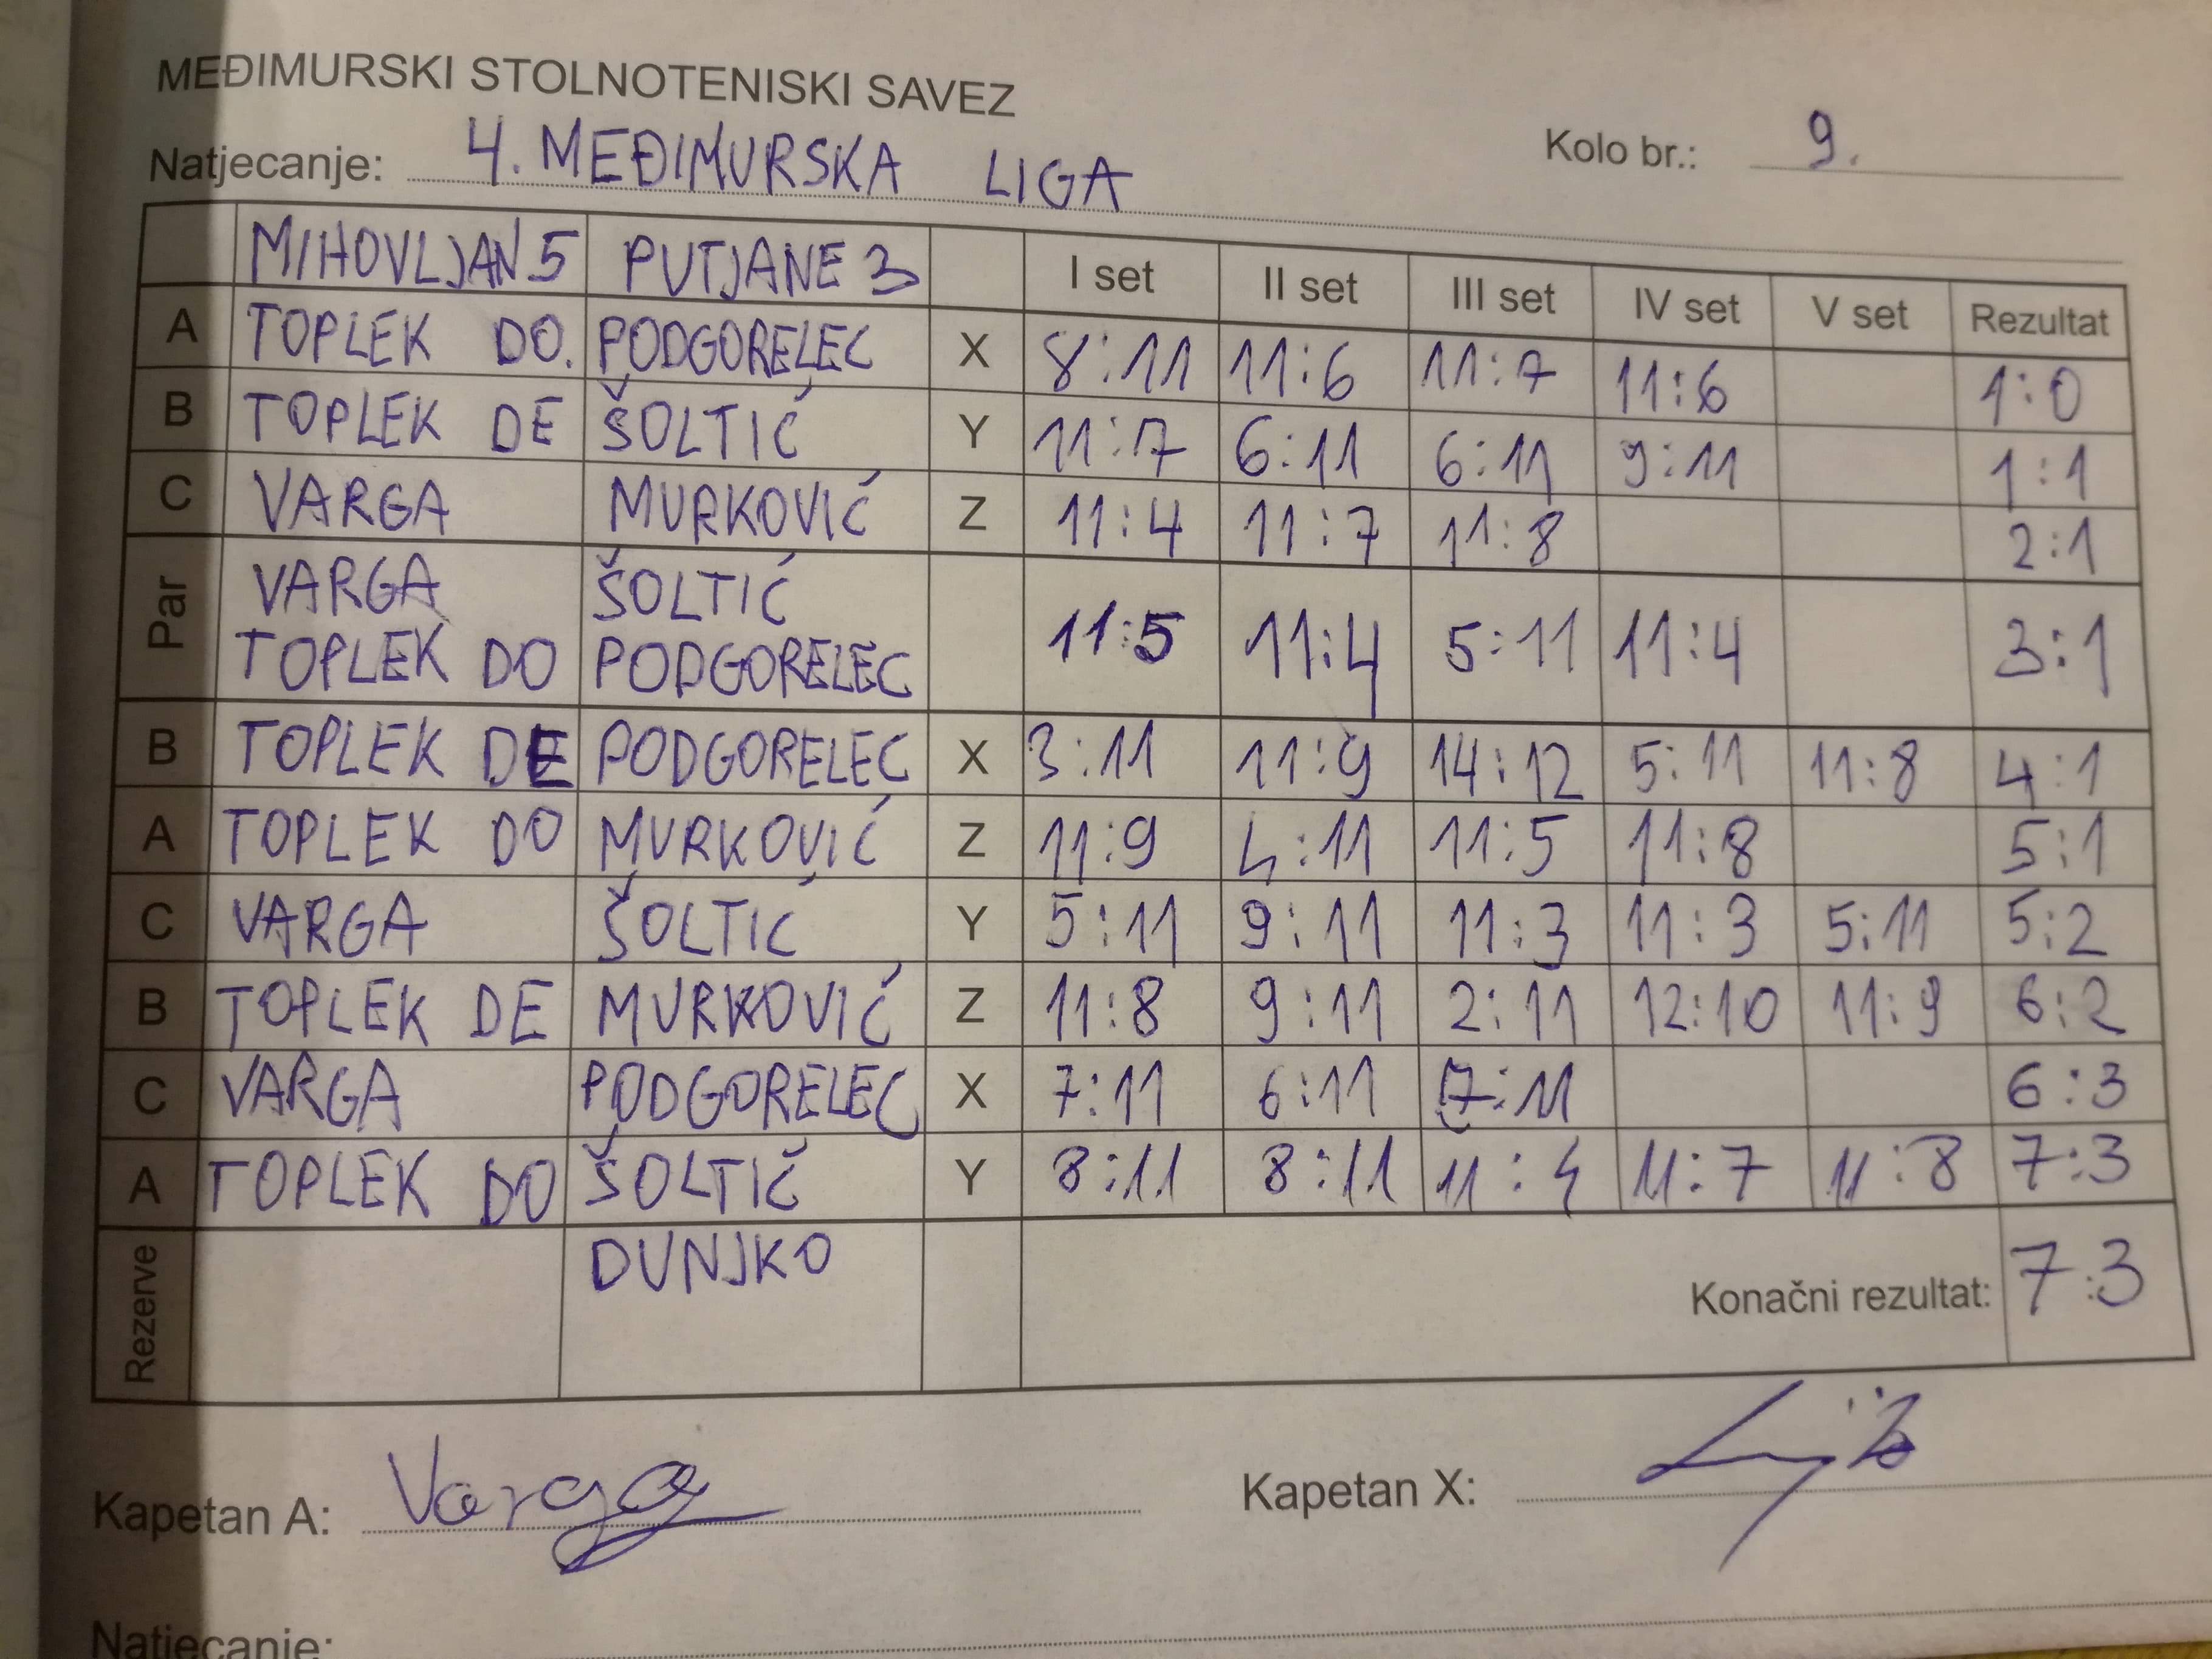 MEĐIMURSKI STOLNOTENISKI SAVEZ
Natjecanje: 4. MEĐIMURSKA LIGA Kolo br.: 9.
MIHOVLJAN 5 PUTJANE 3 I set II set III set IV set V set Rezultat
A TOPLEK DO. PODGORELEC X 8:11 11:6 11:7 11:6 1:0
B TOPLEK DE ŠOLTIĆ Y 11:7 6:11 6:11 9:11 1:1
C VARGA MURKOVIĆ Z 11:4 11:7 11:8 2:1
Par VARGA ŠOLTIĆ
TOPLEK DO PODGORELEC 11:5 11:4 5:11 11:4 3:1
B TOPLEK DE PODGORELEC X 3:11 11:9 14:12 5:11 11:8 4:1
A TOPLEK DO MURKOVIĆ Z 11:9 4:11 11:5 11:8 5:1
C VARGA ŠOLTIĆ Y 5:11 9:11 11:3 11:3 5:11 5:2
B TOPLEK DE MURKOVIĆ Z 11:8 9:11 2:11 12:10 11:9 6:2
C VARGA PODGORELEC X 7:11 6:11 7:11 6:3
A TOPLEK DO ŠOLTIĆ Y 8:11 8:11 11:4 11:7 11:8 7:3
Rezerve DUNJKO Konačni rezultat: 7:3
Kapetan A: Varga Kapetan X:
Natjecanje: